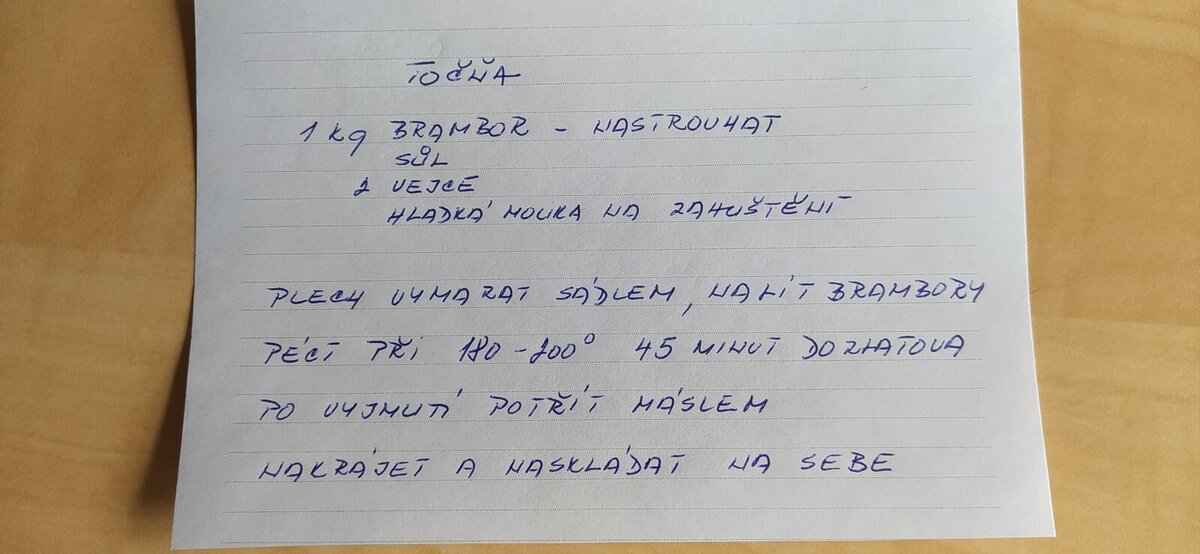 TOČŇA
1 kg BRAMBOR - NASTROUHAT
SŮL
2 VEJCE
HLADKÁ MOUKA NA ZAHUŠTĚNÍ
PLECH VYMAZAT SÁDLEM, NALÍT BRAMBORY
PÉCT PŘI 180-200° 45 MINUT DOZLATOVA
PO VYJMUTÍ POTŘÍT MÁSLEM
NAKRÁJET A NASKLÁDAT NA SEBE